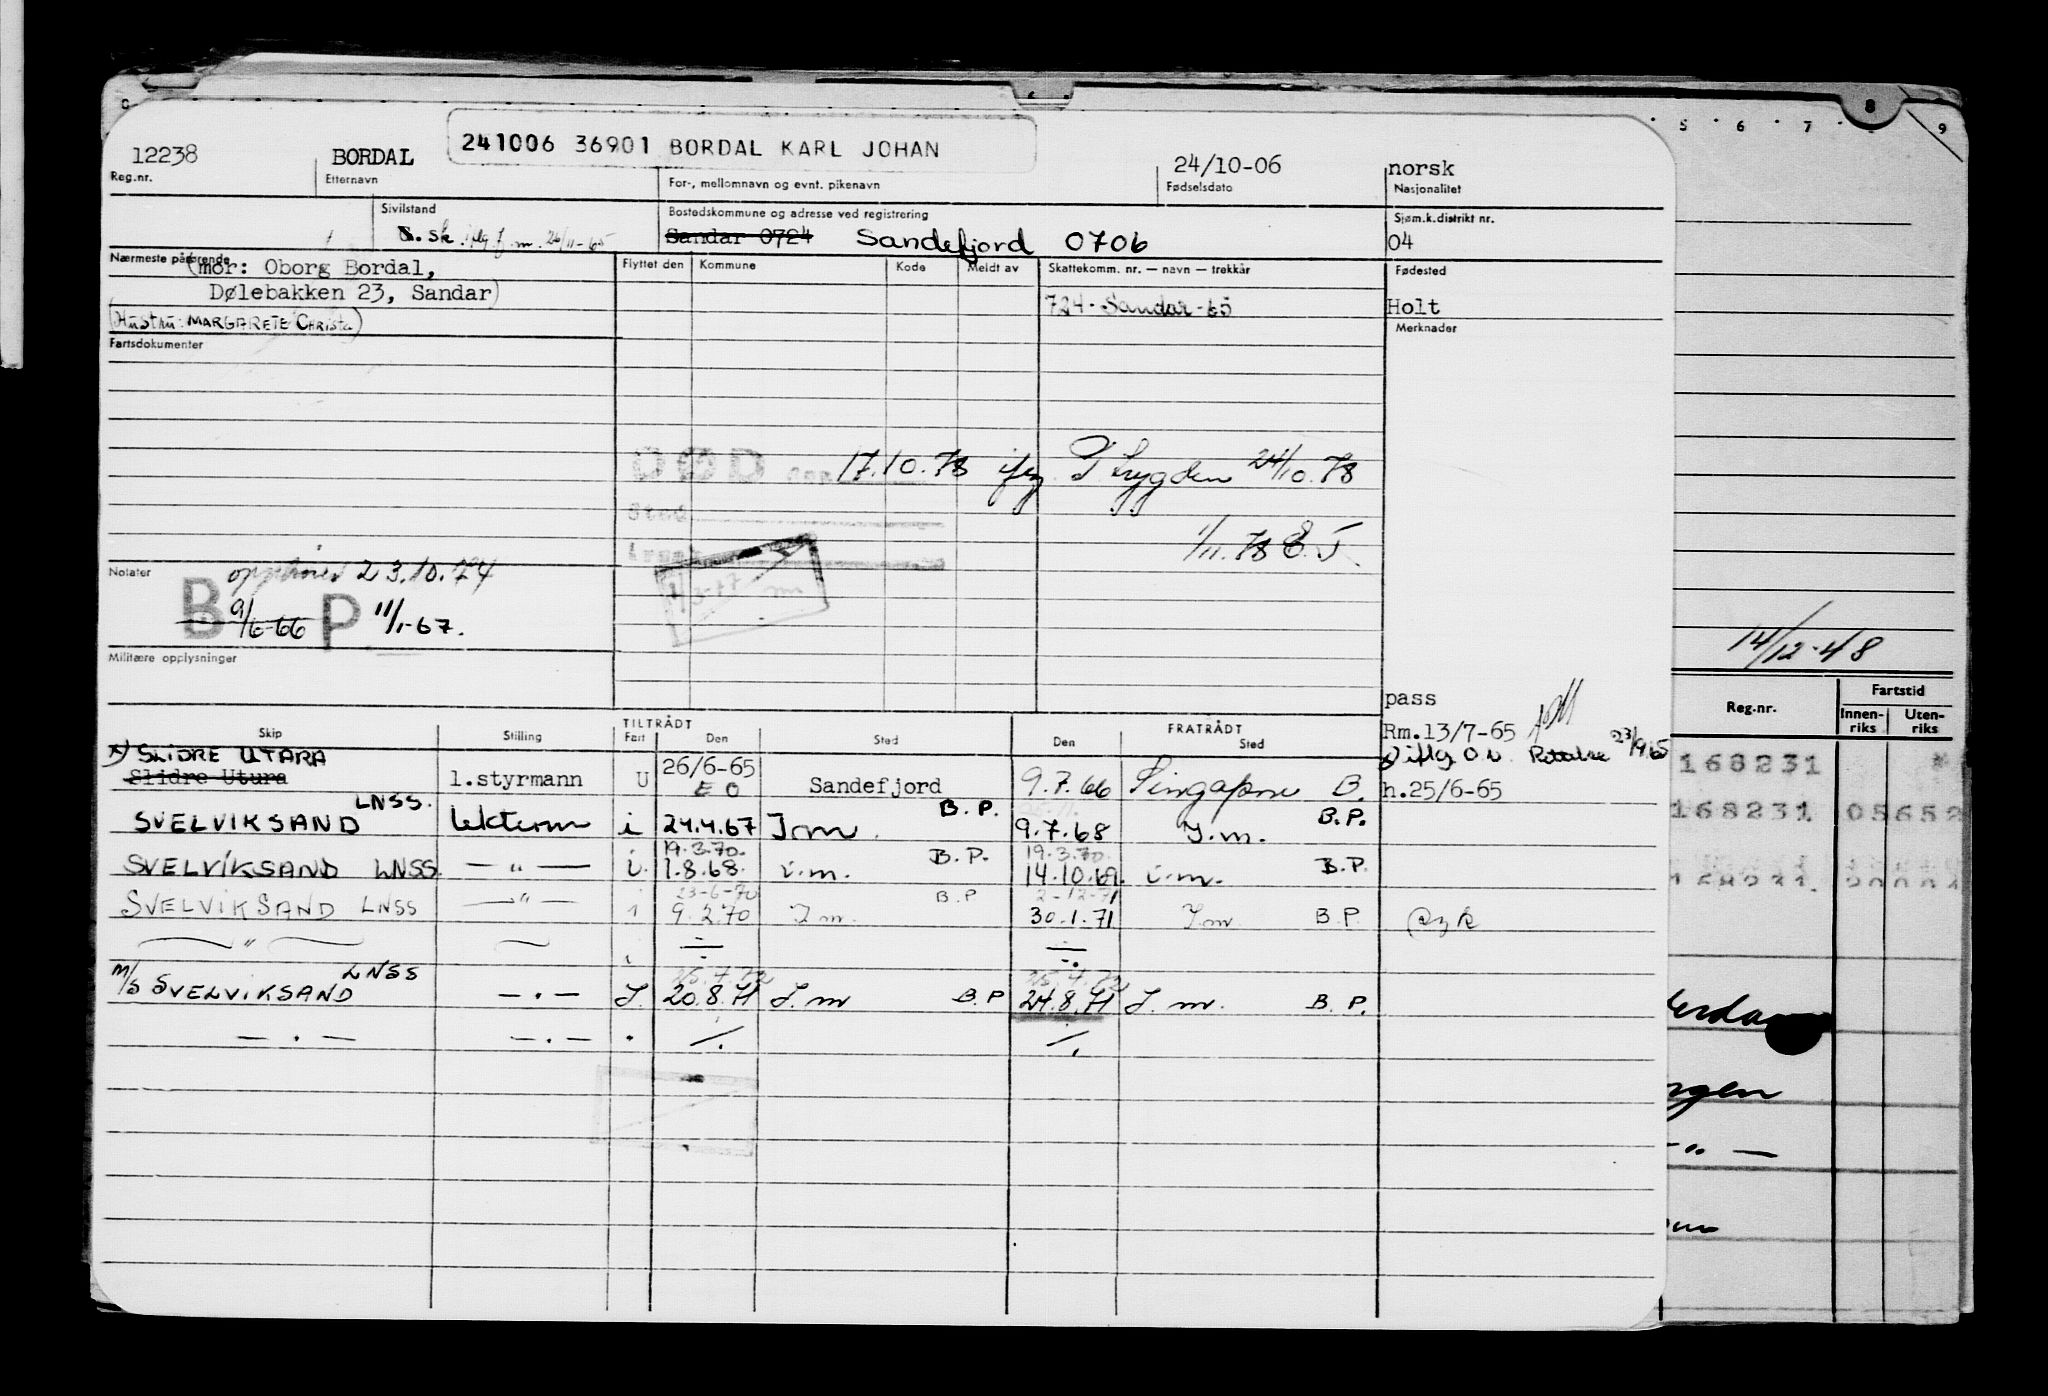 241006 36901 BORDAL KARL JOHAN
12238 BORDAL 24/10-06 norsk
Reg.nr. Etternavn For-, mellomnavn og evnt. pikenavn Fødselsdato Nasjonalitet
Sivilstand Bostedskommune og adresse ved registrering Sjøm.k.distrikt nr.
Sandar 0724 Sandefjord 0706 04
Nærmeste pårørende Flyttet den Kommune Kode Meldt av Skattekomm. nr. — navn — trekkår Fødested
(mor: Oborg Bordal,
Dølebakken 23, Sandar) 724-Sandar-65 Holt
(Hustru: MARGARETE Christa) Merknader
Fartsdokumenter
DØD 17.10.78 24/10.78
Sted
1/11.78
Notater 23.10.74
B 9/6-66 P 11/1-67.
Militære opplysninger
pass
TILTRÅDT FRATRÅDT Rm.13/7-65
Skip Stilling Fart Den Sted Den Sted
x) SLIDRE UTARA 23/9 65
Slidre Utura 1.styrmann U 26/6-65 Sandefjord 9.7.66 Singapore B. h.25/6-65
E O
SVELVIKSAND LNSS. i 24.4.67 I m B.P. 9.7.68 I.m. B.P.
19.3.70. 19.3.70.
SVELVIKSAND LNSS. — " — i. 1.8.68. i.m. B.P. 14.10.69. i.m. B.P.
23-6-70 2-12-71
SVELVIKSAND LNSS — " — i 9.2.70 I m. B.P 30.1.71 I m. B.P.
— " — i
M/S SVELVIKSAND LNSS — . — I. 20.8.71 I. m B.P 24.8.71 I. m. B.P.
— . — — . — . ./. ./.
8
5 6 7 9
14/12-48
Reg.nr. Fartstid
Innen-riks Uten-riks
168231
168231 05652